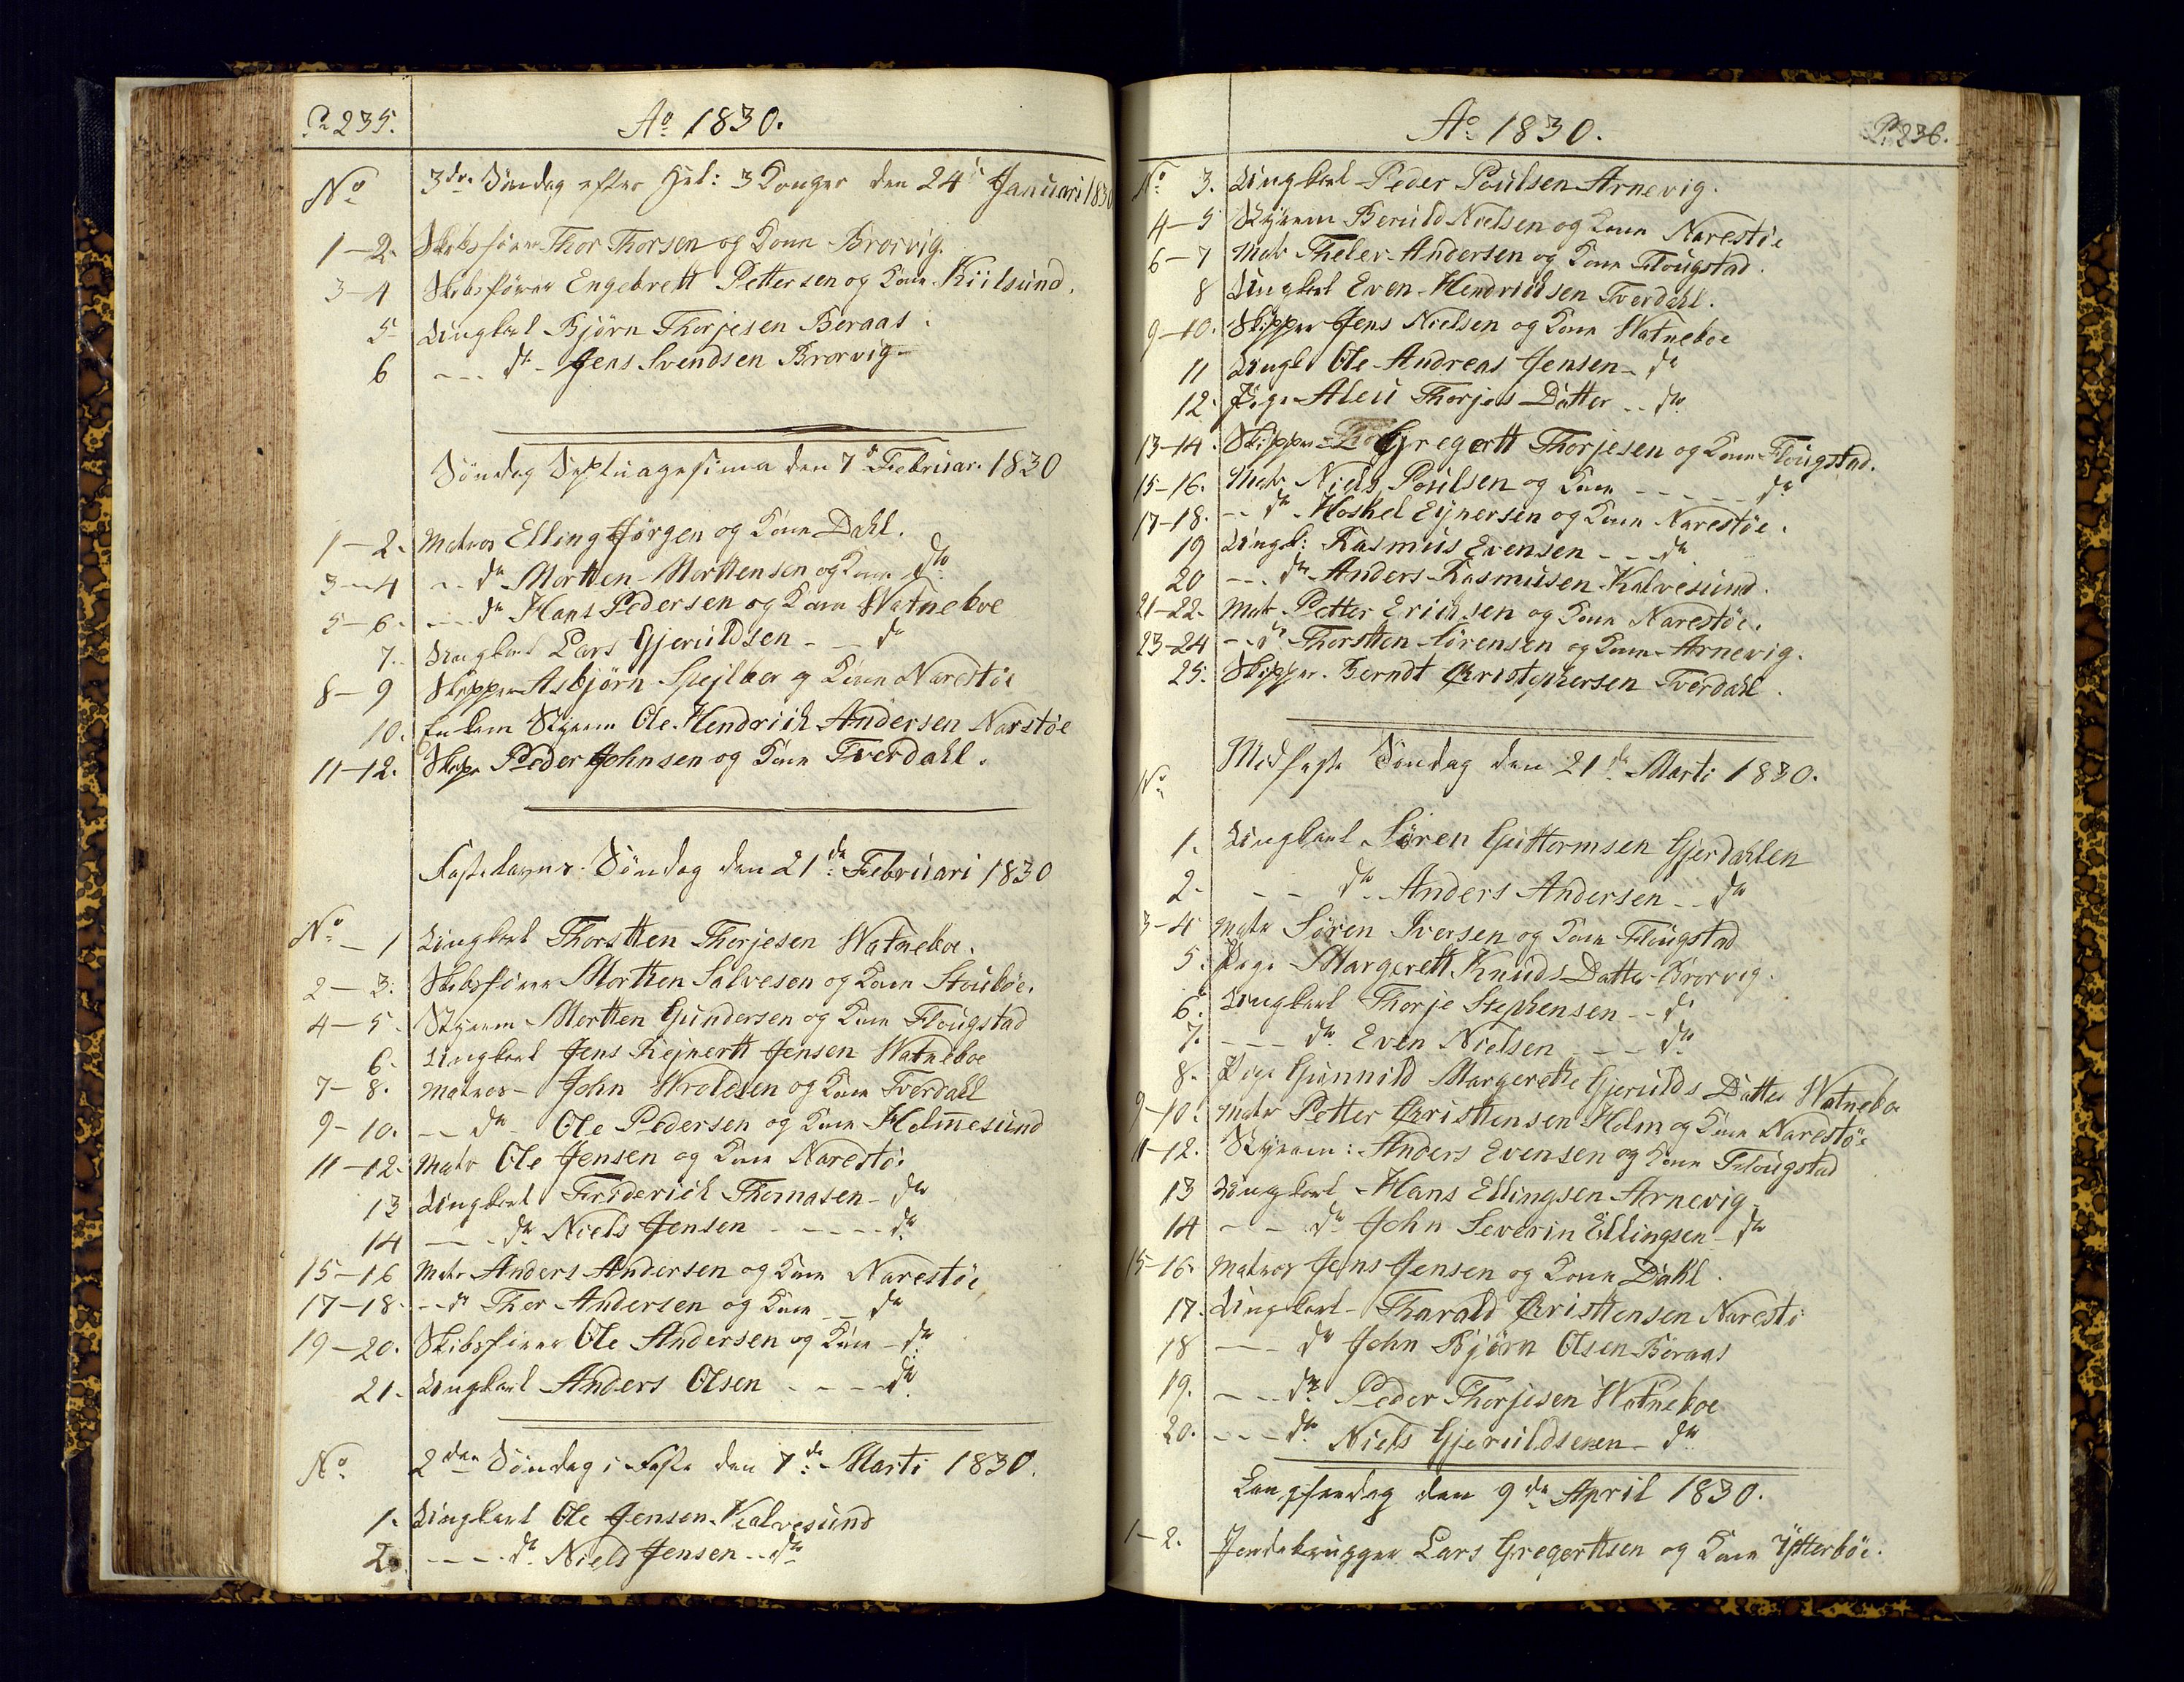 P 235.
Ao 1830.
No 3die Søndag efter Hel: 3 Konger den 24 Januari 1830
1-2. Skibsfører Thor Thorsen og Kone Brorvig.
3-4 Skibsfører Engebrett Pettersen og Kone Kiilsund.
5 Ungkarl Bjørn Thorjesen Beraas.
6 --- do - Jens Svendsen Brorvig-
Søndag Septuagesima den 7 Februar. 1830
1-2. Matros Elling Jørgen og Kone Dahl.
3-4 -- do Mortten Morttensen og Kone do
5-6. --- do Hans Pedersen og Kone Watneboe
7. Ungkarl Lars Gjeruldsen - - do
8-9 Skipper Asbjørn Spejlber og Kone Narestøe
10. Enkem Styrm Ole Hendrich Andersen Narstøe
11-12. Skipr Peder Johnsen og Kone Tverdahl.
Fastelavns Søndag den 21de Februari 1830
No - 1 Ungkarl Thorstten Thorjesen Watneboe.
2-3. Skibsfører Mortten Salvesen og Kone Stoubøe.
4-5. Styrm Mortten Gundersen og Kone Flougstad
6. Ungkarl Jens Rejnertt Jensen Watneboe
7-8. Matros- John Wroldsen og Kone Tverdall
9-10. -- do - Ole Pedersen og Kone Holmesund
11-12. Matr Ole Jensen og Kone Narestøe
13 Ungkarl Friderich Thomasen - do
14 -- do Niels Jensen ----- do
15-16 Matr Anders Andersen og Kone Narestøe
17-18. -- do Thor Andersen og Kone -- do
19-20. Skibsfører Ole Andersen og Kone - do
21. Ungkarl Anders Olsen ---- do
No 2den Søndag i Faste den 7de Marti 1830.
1. Ungkarl Ole Jensen Kalvesund
2. ---- do Niels Jensen -- do
Ao 1830.
P. 236.
No 3. Ungkarl Peder Poulsen Arnevig.
4-5 Styrm Beruld Nielsen og Kone Narestøe
6-7 Matr Theler Andersen og Kone Flougstad.
8 Ungkarl Even Hendrichsen Tverdahl.
9-10. Skipper Jens Nielsen og Kone Watneboe
11 Ungk Ole Andreas Jensen - do
12. Pige Aleu Thorjes Datter -- do
13-14. Skipper Gregertt Thorjesen og Kone Flougstad.
15-16. Matr Niels Poulsen og Kone ----- do
17-18. -- do Hoskel Ejnersen og Kone Narestøe.
19 Ungk: Rasmus Evensen --- do
20 --- do Anders Rasmusen Kalvesund.
21-22. Matr Petter Erichsen og Kone Narestøe.
23-24 -- do Thorstten Sørensen og Kone Arnevig.
25. Skipper. Berndt Christophersen Tverdahl.
No Midfaste Søndag den 21de Marti 1830.
1. Ungkarl Søren Guttormsen Gjerdahlen
2. -- do Anders Andersen -- do
3-4 Matr Søren Iversen og Kone Flougstad
5. Pige Margarett Knuds Datter Brorvig.
6. Ungkarl Thorje Stephensen -- do
7. --- do Even Nielsen --- do
8. Pige Gunnild Margerethe Gjerulds Datter Watneboe
9-10. Matr Petter Christtensen Holm og Kone Narestøe
11-12. Styrm: Anders Evensen og Kone Flougstad
13 Ungkarl Hans Ellingsen Arnevig.
14 -- do John Severin Ellingsen - do
15-16. Matros Jens Jensen og Kone Dahl.
17. Ungkarl - Tharald Christtensen Narestø
18 --- do John Bjørn Olsen Beraas
19. --- do Peder Thorjesen Watneboe
20. --- do Niels Gjeruldsen - do
Langfredag den 9de April 1830.
1-2. Jordebrugger Lars Gregerttsen og Kone Ytterbøe.